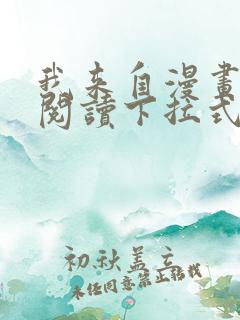 我来自漫畫
閱讀下拉式
初秋盖立
未经同意禁止转载